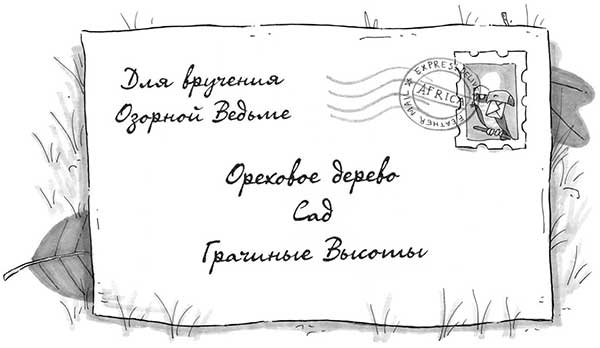 Для вручения
Озорной Ведьме
EXPRESS DELIVERY
AFRICA
FEATHER MAIL
Ореховое дерево
Сад
Грачиные Высоты